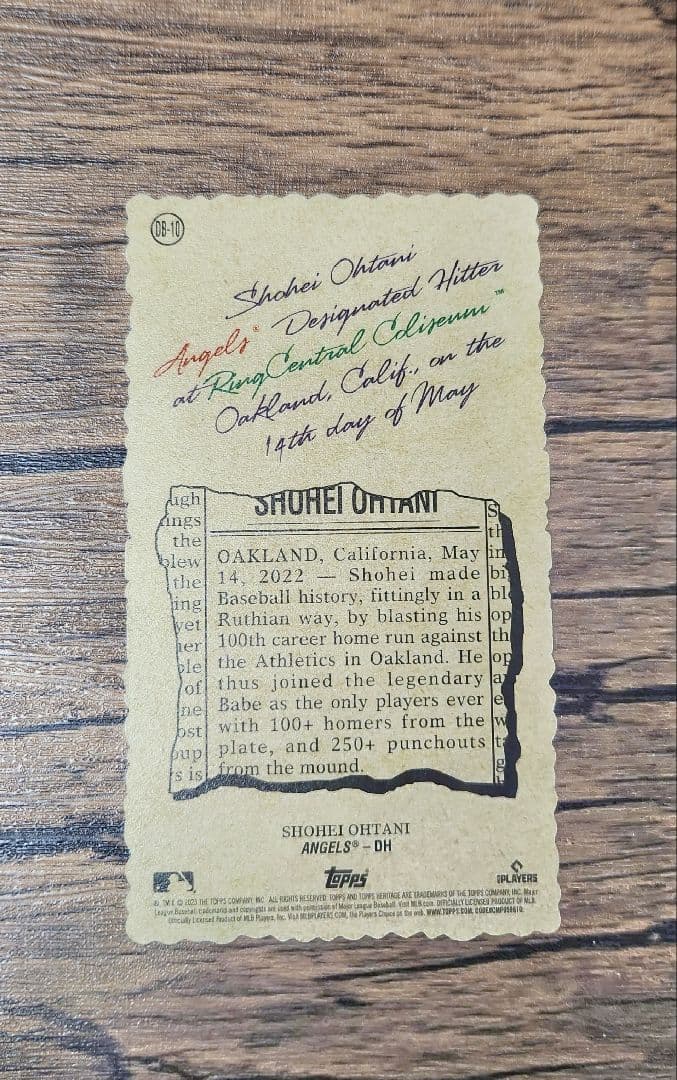 DB-10
Shohei Ohtani
Angels® Designated Hitter
at RingCentral Coliseum™
Oakland, Calif., on the
14th day of May
SHOHEI OHTANI
ugh
ings
the
blew
the
ing
vet
ner
ole
of
ne
ost
oup
s is
OAKLAND, California, May
14, 2022 — Shohei made
Baseball history, fittingly in a
Ruthian way, by blasting his
100th career home run against
the Athletics in Oakland. He
thus joined the legendary
Babe as the only players ever
with 100+ homers from the
plate, and 250+ punchouts
from the mound.
S
th
in
bi
bl
op
th
op
a
e
w
t
g
SHOHEI OHTANI
ANGELS® – DH
topps
PLAYERS
®, TM & © 2023 THE TOPPS COMPANY, INC. ALL RIGHTS RESERVED. TOPPS AND TOPPS HERITAGE ARE TRADEMARKS OF THE TOPPS COMPANY, INC. Major
League Baseball trademarks and copyrights are used with permission of Major League Baseball. Visit MLB.com. OFFICIALLY LICENSED PRODUCT OF MLB
Officially Licensed Product of MLB Players, Inc. Visit MLBPLAYERS.COM, the Players Choice on the web. WWW.TOPPS.COM.